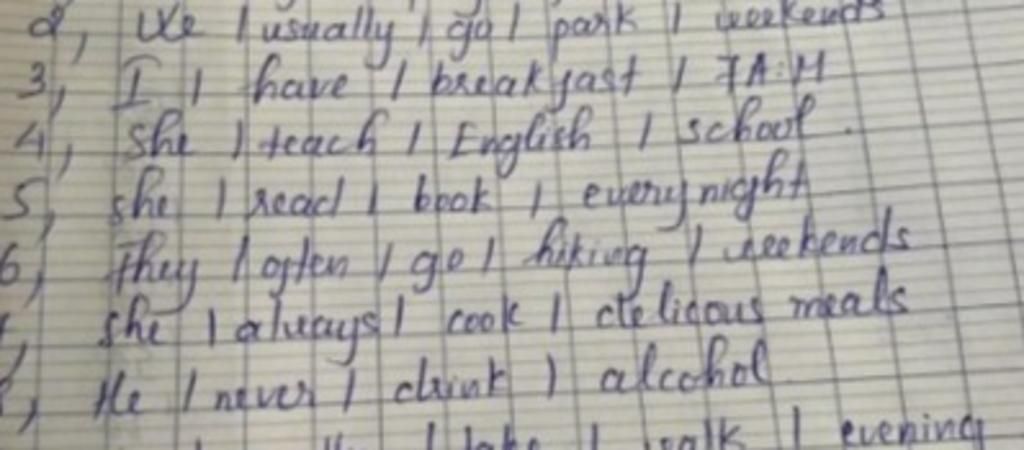 2, We / usually / go / park / weekends
3, I / have / breakfast / 7A.M
4, she / teach / English / school.
5, she / read / book / every night
6, They / often / go / hiking / weekends
, she / always / cook / delicous meals
, He / never / drink / alcohol
/ take / walk / evening